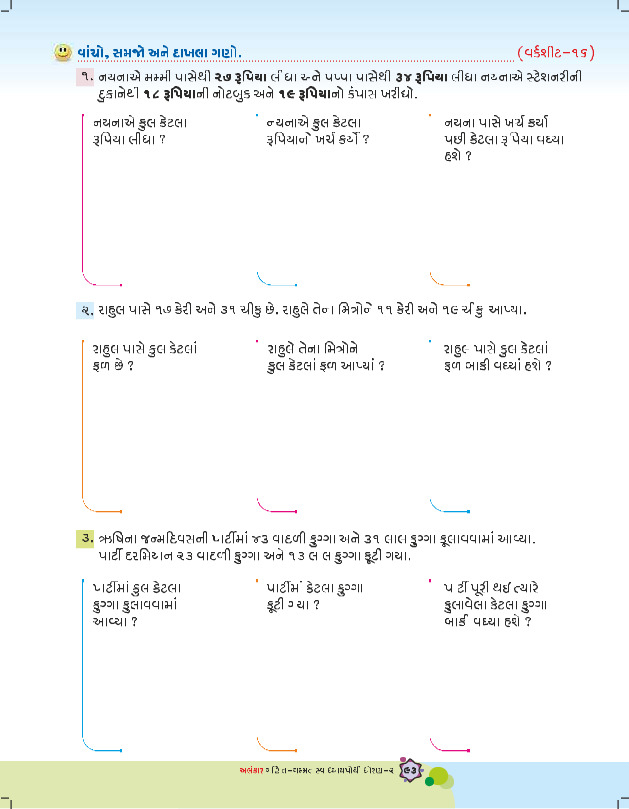 વાંચો, સમજો અને દાખલા ગણો. (વર્કશીટ-૧૬)
૧. નયનાએ મમ્મી પાસેથી ૨૭ રૂપિયા લીધા અને પપ્પા પાસેથી ૩૪ રૂપિયા લીધા નયનાએ સ્ટેશનરીની
દુકાનેથી ૧૮ રૂપિયાની નોટબુક અને ૧૯ રૂપિયાનો કંપાસ ખરીદ્યો.
નયનાએ કુલ કેટલા
રૂપિયા લીધા ?
નયનાએ કુલ કેટલા
રૂપિયાનો ખર્ચ કર્યો ?
નયના પાસે ખર્ચ કર્યા
પછી કેટલા રૂપિયા વધ્યા
હશે ?
૨. રાહુલ પાસે ૧૭ કેરી અને ૩૧ ચીકુ છે. રાહુલે તેના મિત્રોને ૧૧ કેરી અને ૧૯ ચીકુ આપ્યા.
રાહુલ પાસે કુલ કેટલાં
ફળ છે ?
રાહુલે તેના મિત્રોને
કુલ કેટલાં ફળ આપ્યાં ?
રાહુલ પાસે કુલ કેટલાં
ફળ બાકી વધ્યાં હશે ?
૩. ઋષિના જન્મદિવસની પાર્ટીમાં ૪૩ વાદળી ફુગ્ગા અને ૩૧ લાલ ફુગ્ગા ફૂલાવવામાં આવ્યા.
પાર્ટી દરમિયાન ૨૩ વાદળી ફુગ્ગા અને ૧૩ લાલ ફુગ્ગા ફૂટી ગયા.
પાર્ટીમાં કુલ કેટલા
ફુગ્ગા ફુલાવવામાં
આવ્યા ?
પાર્ટીમાં કેટલા ફુગ્ગા
ફૂટી ગયા ?
પાર્ટી પૂરી થઈ ત્યારે
ફુલાવેલા કેટલા ફુગ્ગા
બાકી વધ્યા હશે ?
અલંકાર ગણિત-ગમ્મત સ્વાધ્યાયપોથી ધોરણ-૨ ૯૩